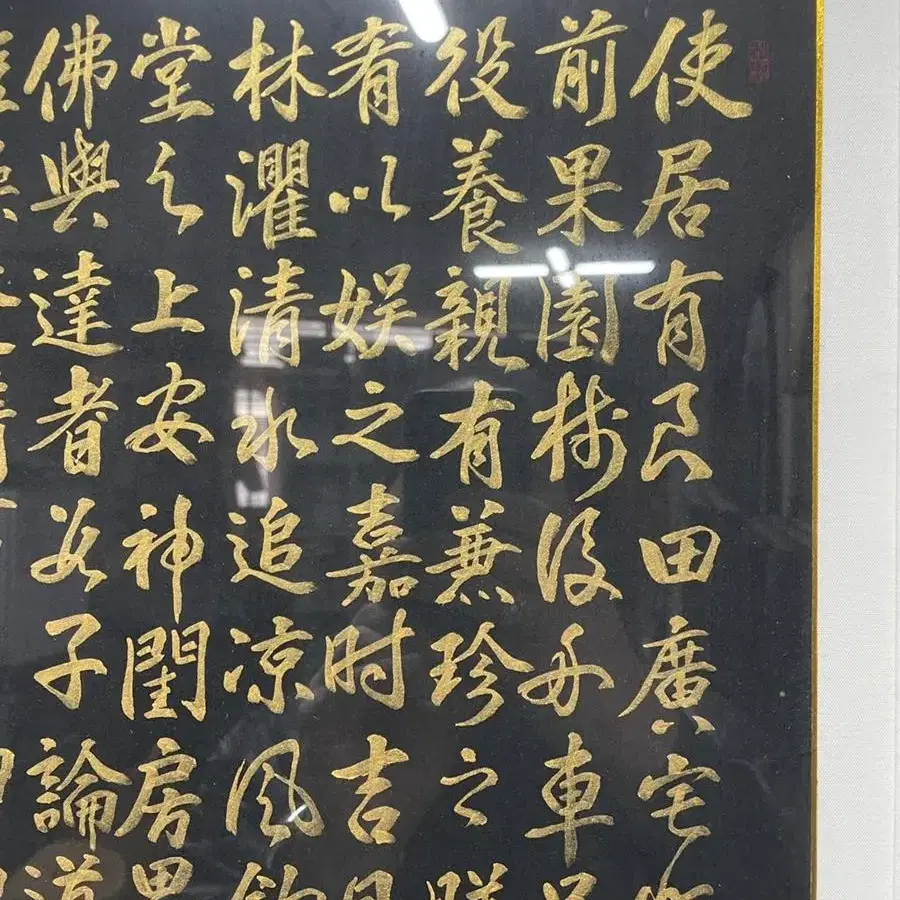 使居有良田廣宅
前果園樹後舟車
役養親有兼珍之
肴以娛之嘉时吉
林濯清水追凉風
堂之上安神閨房
佛與達者数子論